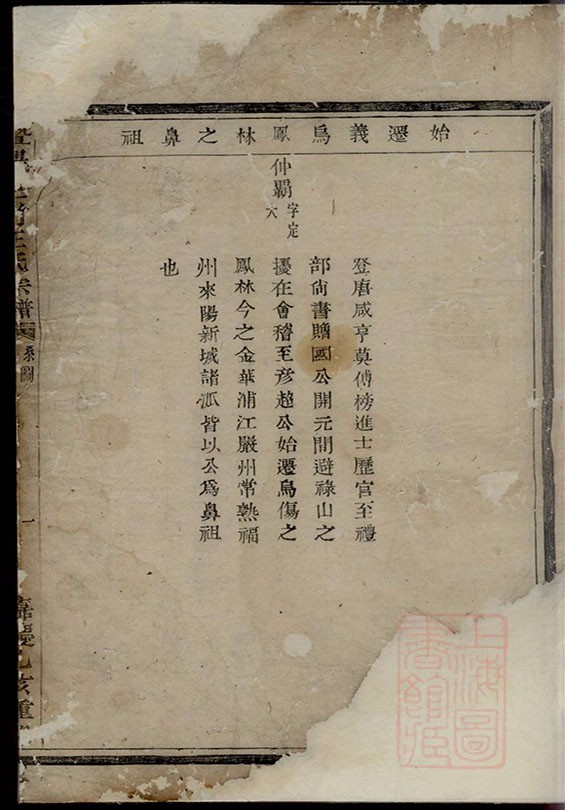 始遷義烏鳳林之鼻祖
仲羈 字定六
登唐咸亨莫傅榜進士歷官至禮
部尙書贈國公開元間避祿山之
擾在會稽至彦超公始遷烏傷之
鳳林今之金華浦江嚴州常熟福
州來陽新城諸派皆以公爲鼻祖
也
王氏宗譜 系圖
一
嘉慶己亥重
上海圖書館藏